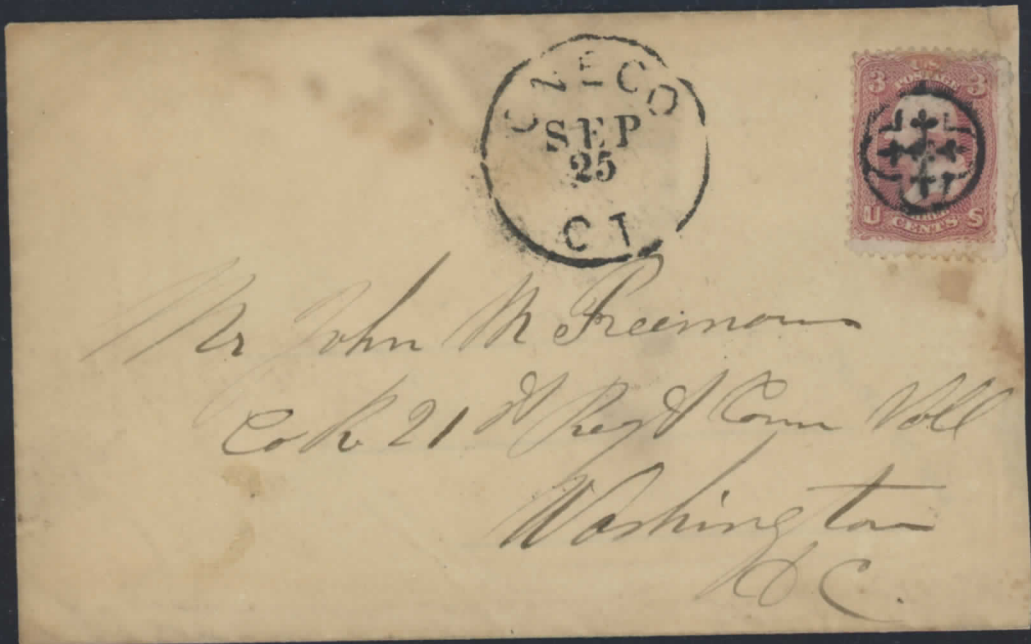 ONECO
SEP
25
CT
U.S.
POSTAGE
3 3
U CENTS S
Mr John M Freeman
Co K 21st Regt Conn Voll
Washington
D C.